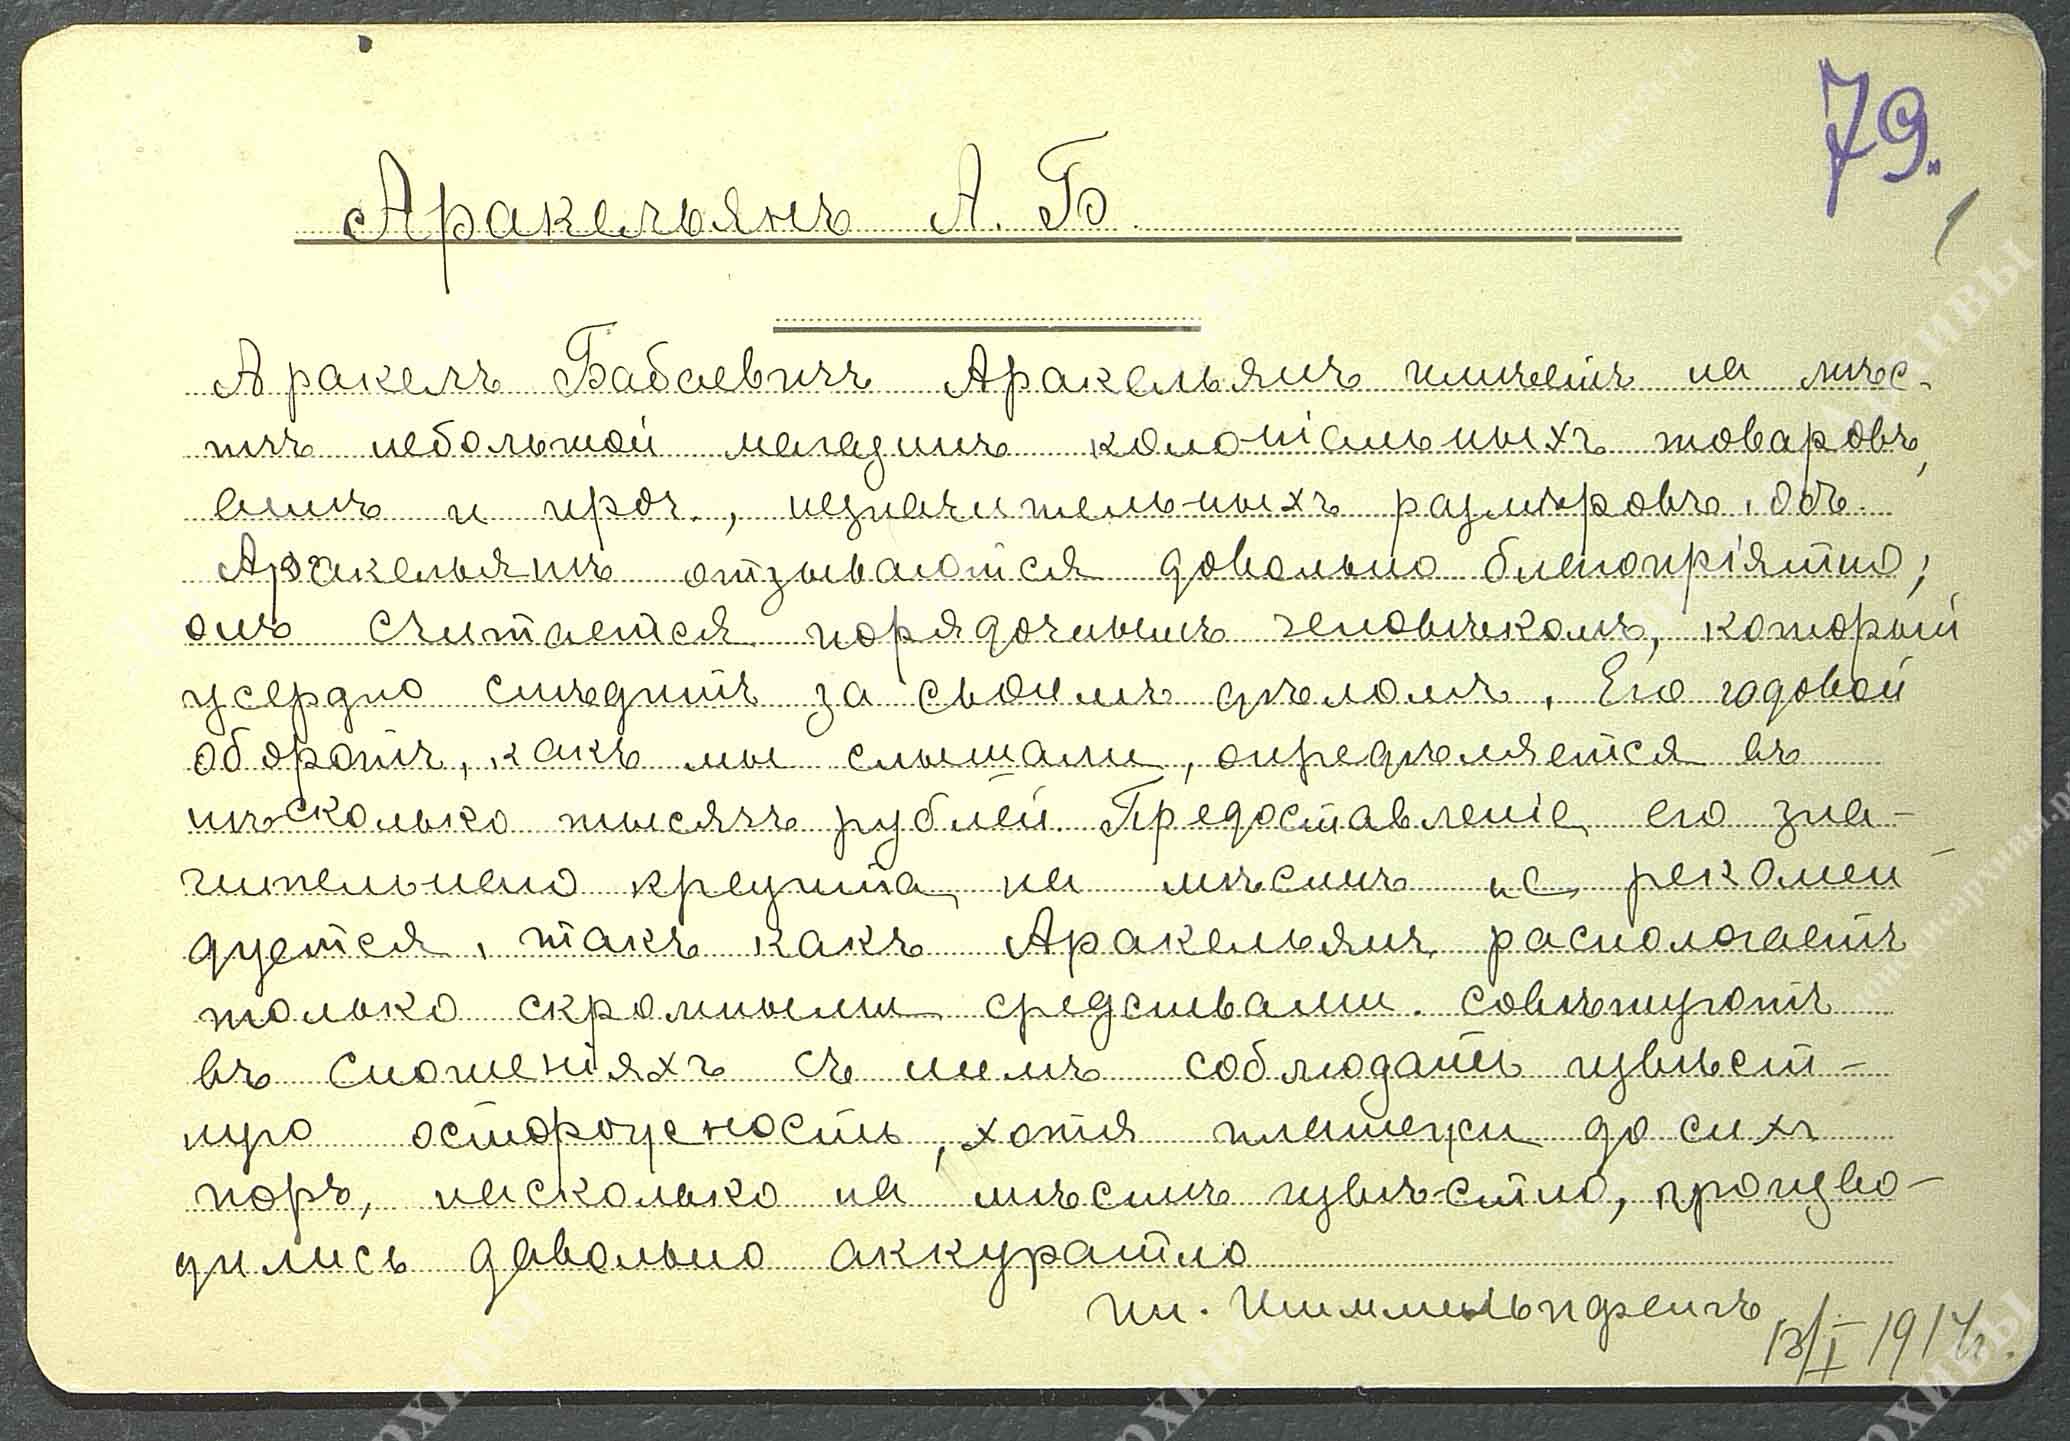 79.
Аракельянъ А. Б.
Аракелъ Бабаевичъ Аракельянъ имѣетъ на мѣс-
тѣ небольшой магазинъ колоніальныхъ товаровъ,
винъ и проч., незначительныхъ размѣровъ. Объ
Аракельянѣ отзываются довольно благопріятно;
онъ считается порядочнымъ человѣкомъ, который
усердно слѣдитъ за своимъ дѣломъ. Его годовой
оборотъ, какъ мы слышали, опредѣляется въ
нѣсколько тысячъ рублей. Предоставленіе его зна-
чительнаго кредита на мѣстѣ не рекомен-
дуется, такъ какъ Аракельянъ располагаетъ
только скромными средствами. Совѣтуютъ
въ сношеніяхъ съ нимъ соблюдать извѣст-
ную осторожность, хотя платежи до сихъ
поръ, насколько на мѣстѣ извѣстно, произво-
дились довольно аккуратно
Шиммельпфенгъ
13/I 1914г.